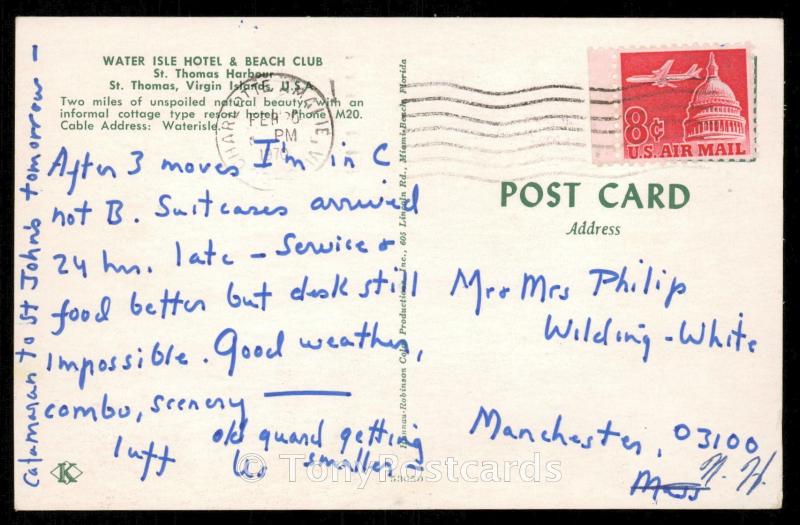 WATER ISLE HOTEL & BEACH CLUB
St. Thomas Harbour
St. Thomas, Virgin Islands, U.S.A.
Two miles of unspoiled natural beauty, with an
informal cottage type resort hotel. Phone M20.
Cable Address: Waterisle.
After 3 moves I'm in C
not B. Suitcases arrived
24 hrs. late - Service &
food better but desk still
impossible. Good weather,
combo, scenery
old guard getting
smaller -
luff
Catamaran to St John's tomorrow -
K
CHARLOTTE AMALIE, V.I.
FEB
PM
1970
Hannau-Robinson Color Productions, Inc., 605 Lincoln Rd., Miami Beach, Florida
8¢
U.S. AIR MAIL
POST CARD
Address
Mr & Mrs Philip
Wilding-White
Manchester, 03100
Mass N.H.
© TonyPostcards